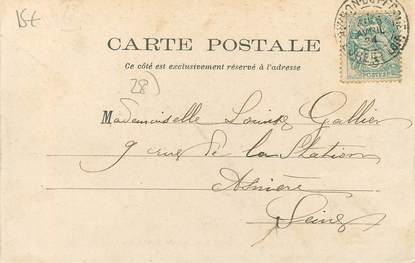 15€
CARTE POSTALE
Ce côté est exclusivement réservé à l'adresse
28)
Mademoiselle Louise Gallier
9 rue de la Station
Asnière
Seine